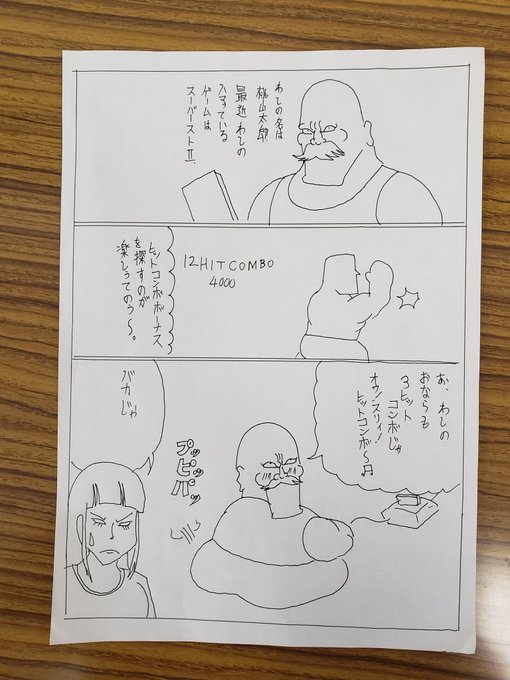 わしの名は
桃山太郎
最近わしの
ハマっている
ゲームは
スーパーストⅡ.
12HITCOMBO
4000
ヒットコンボボーナス
を探すのが
楽しうてのう〜。
お、わしの
おならも
3ヒット
コンボじゃ
オウ!スリィ!
ヒットコンボ〜♫
プッ
ピッ
パッ
バカじゃ